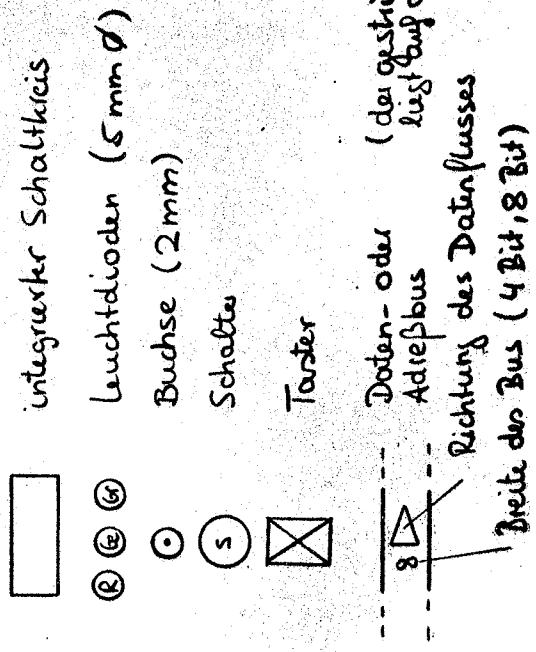 integrierter Schaltkreis
R Ge Gr Leuchtdioden (5 mm Ø)
Buchse (2mm)
S Schalter
Taster
Daten- oder
Adreßbus
(der
liegt auf
8
Richtung des Datenflusses
Breite des Bus (4 Bit, 8 Bit)